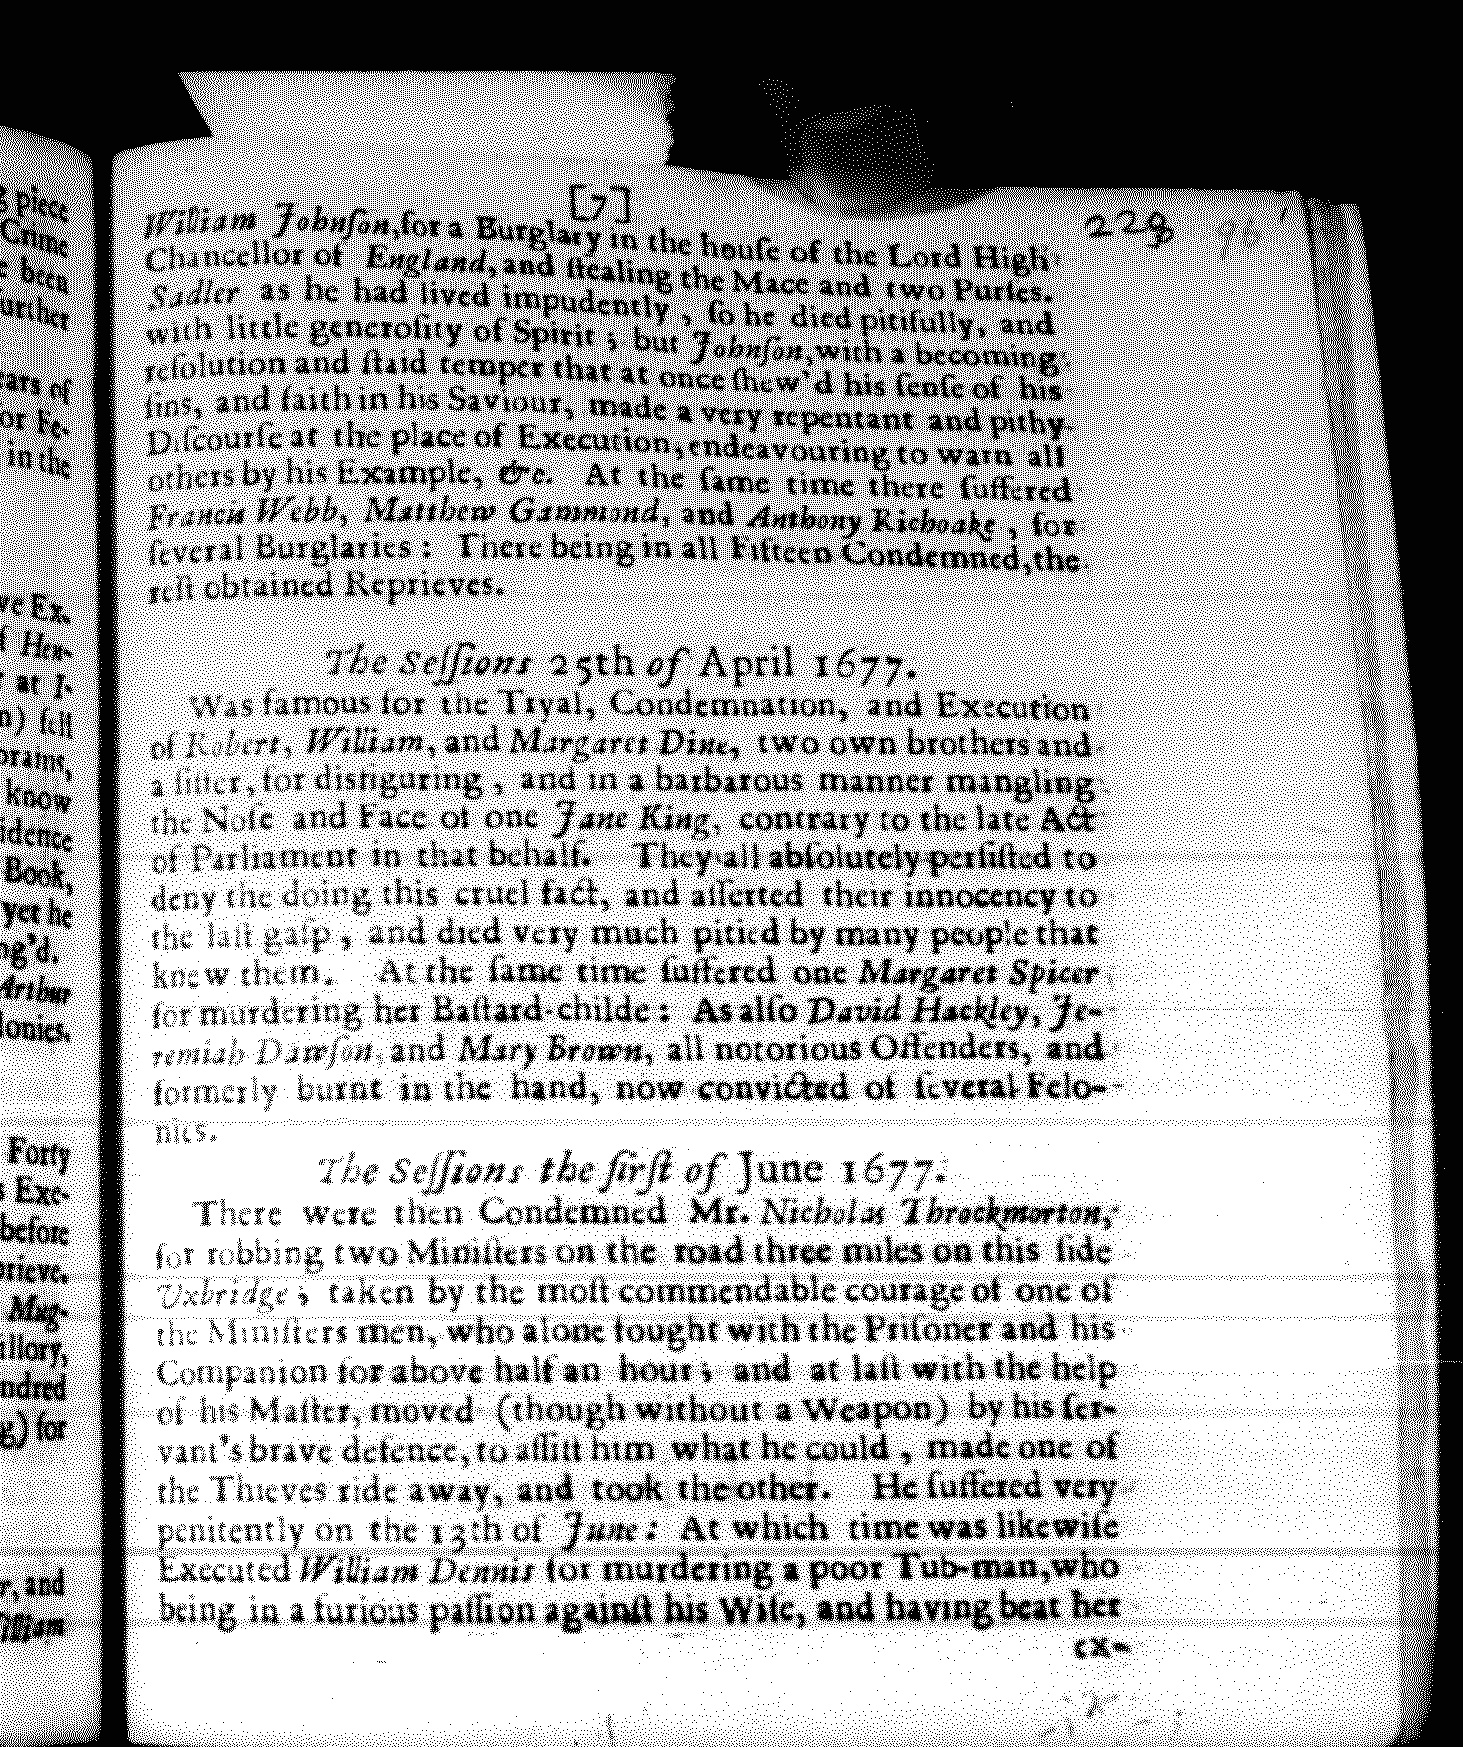 [7]
229
William Johnſon, for a Burglary in the houſe of the Lord High
Chancellor of England, and ſtealing the Mace and two Purſes.
Sadler as he had lived impudently, ſo he died pitifully, and
with little generoſity of Spirit; but Johnſon, with a becoming
reſolution and ſtaid temper that at once ſhew'd his ſenſe of his
ſins, and faith in his Saviour, made a very repentant and pithy
Diſcourſe at the place of Execution, endeavouring to warn all
others by his Example, &c. At the ſame time there ſuffered
Francis Webb, Matthew Gammond, and Anthony Richoake, for
ſeveral Burglaries: There being in all Fifteen Condemned, the
reſt obtained Reprieves.
The Seſſions 25th of April 1677.
Was famous for the Tryal, Condemnation, and Execution
of Robert, William, and Margaret Dine, two own brothers and
a ſiſter, for disfiguring, and in a barbarous manner mangling
the Noſe and Face of one Jane King, contrary to the late Act
of Parliament in that behalf. They all abſolutely perſiſted to
deny the doing this cruel fact, and aſſerted their innocency to
the laſt gaſp, and died very much pitied by many people that
knew them. At the ſame time ſuffered one Margaret Spicer
for murdering her Baſtard-childe: As alſo David Hackley, Je-
remiah Dawſon, and Mary Brown, all notorious Offenders, and
formerly burnt in the hand, now convicted of ſeveral Felo-
nies.
The Seſſions the firſt of June 1677.
There were then Condemned Mr. Nicholas Throckmorton,
for robbing two Miniſters on the road three miles on this ſide
Uxbridge; taken by the moſt commendable courage of one of
the Miniſters men, who alone fought with the Priſoner and his
Companion for above half an hour; and at laſt with the help
of his Maſter, moved (though without a Weapon) by his ſer-
vant's brave defence, to aſſiſt him what he could, made one of
the Thieves ride away, and took the other. He ſuffered very
penitently on the 13th of June: At which time was likewiſe
Executed William Dennis for murdering a poor Tub-man, who
being in a furious paſſion againſt his Wife, and having beat her
ex-